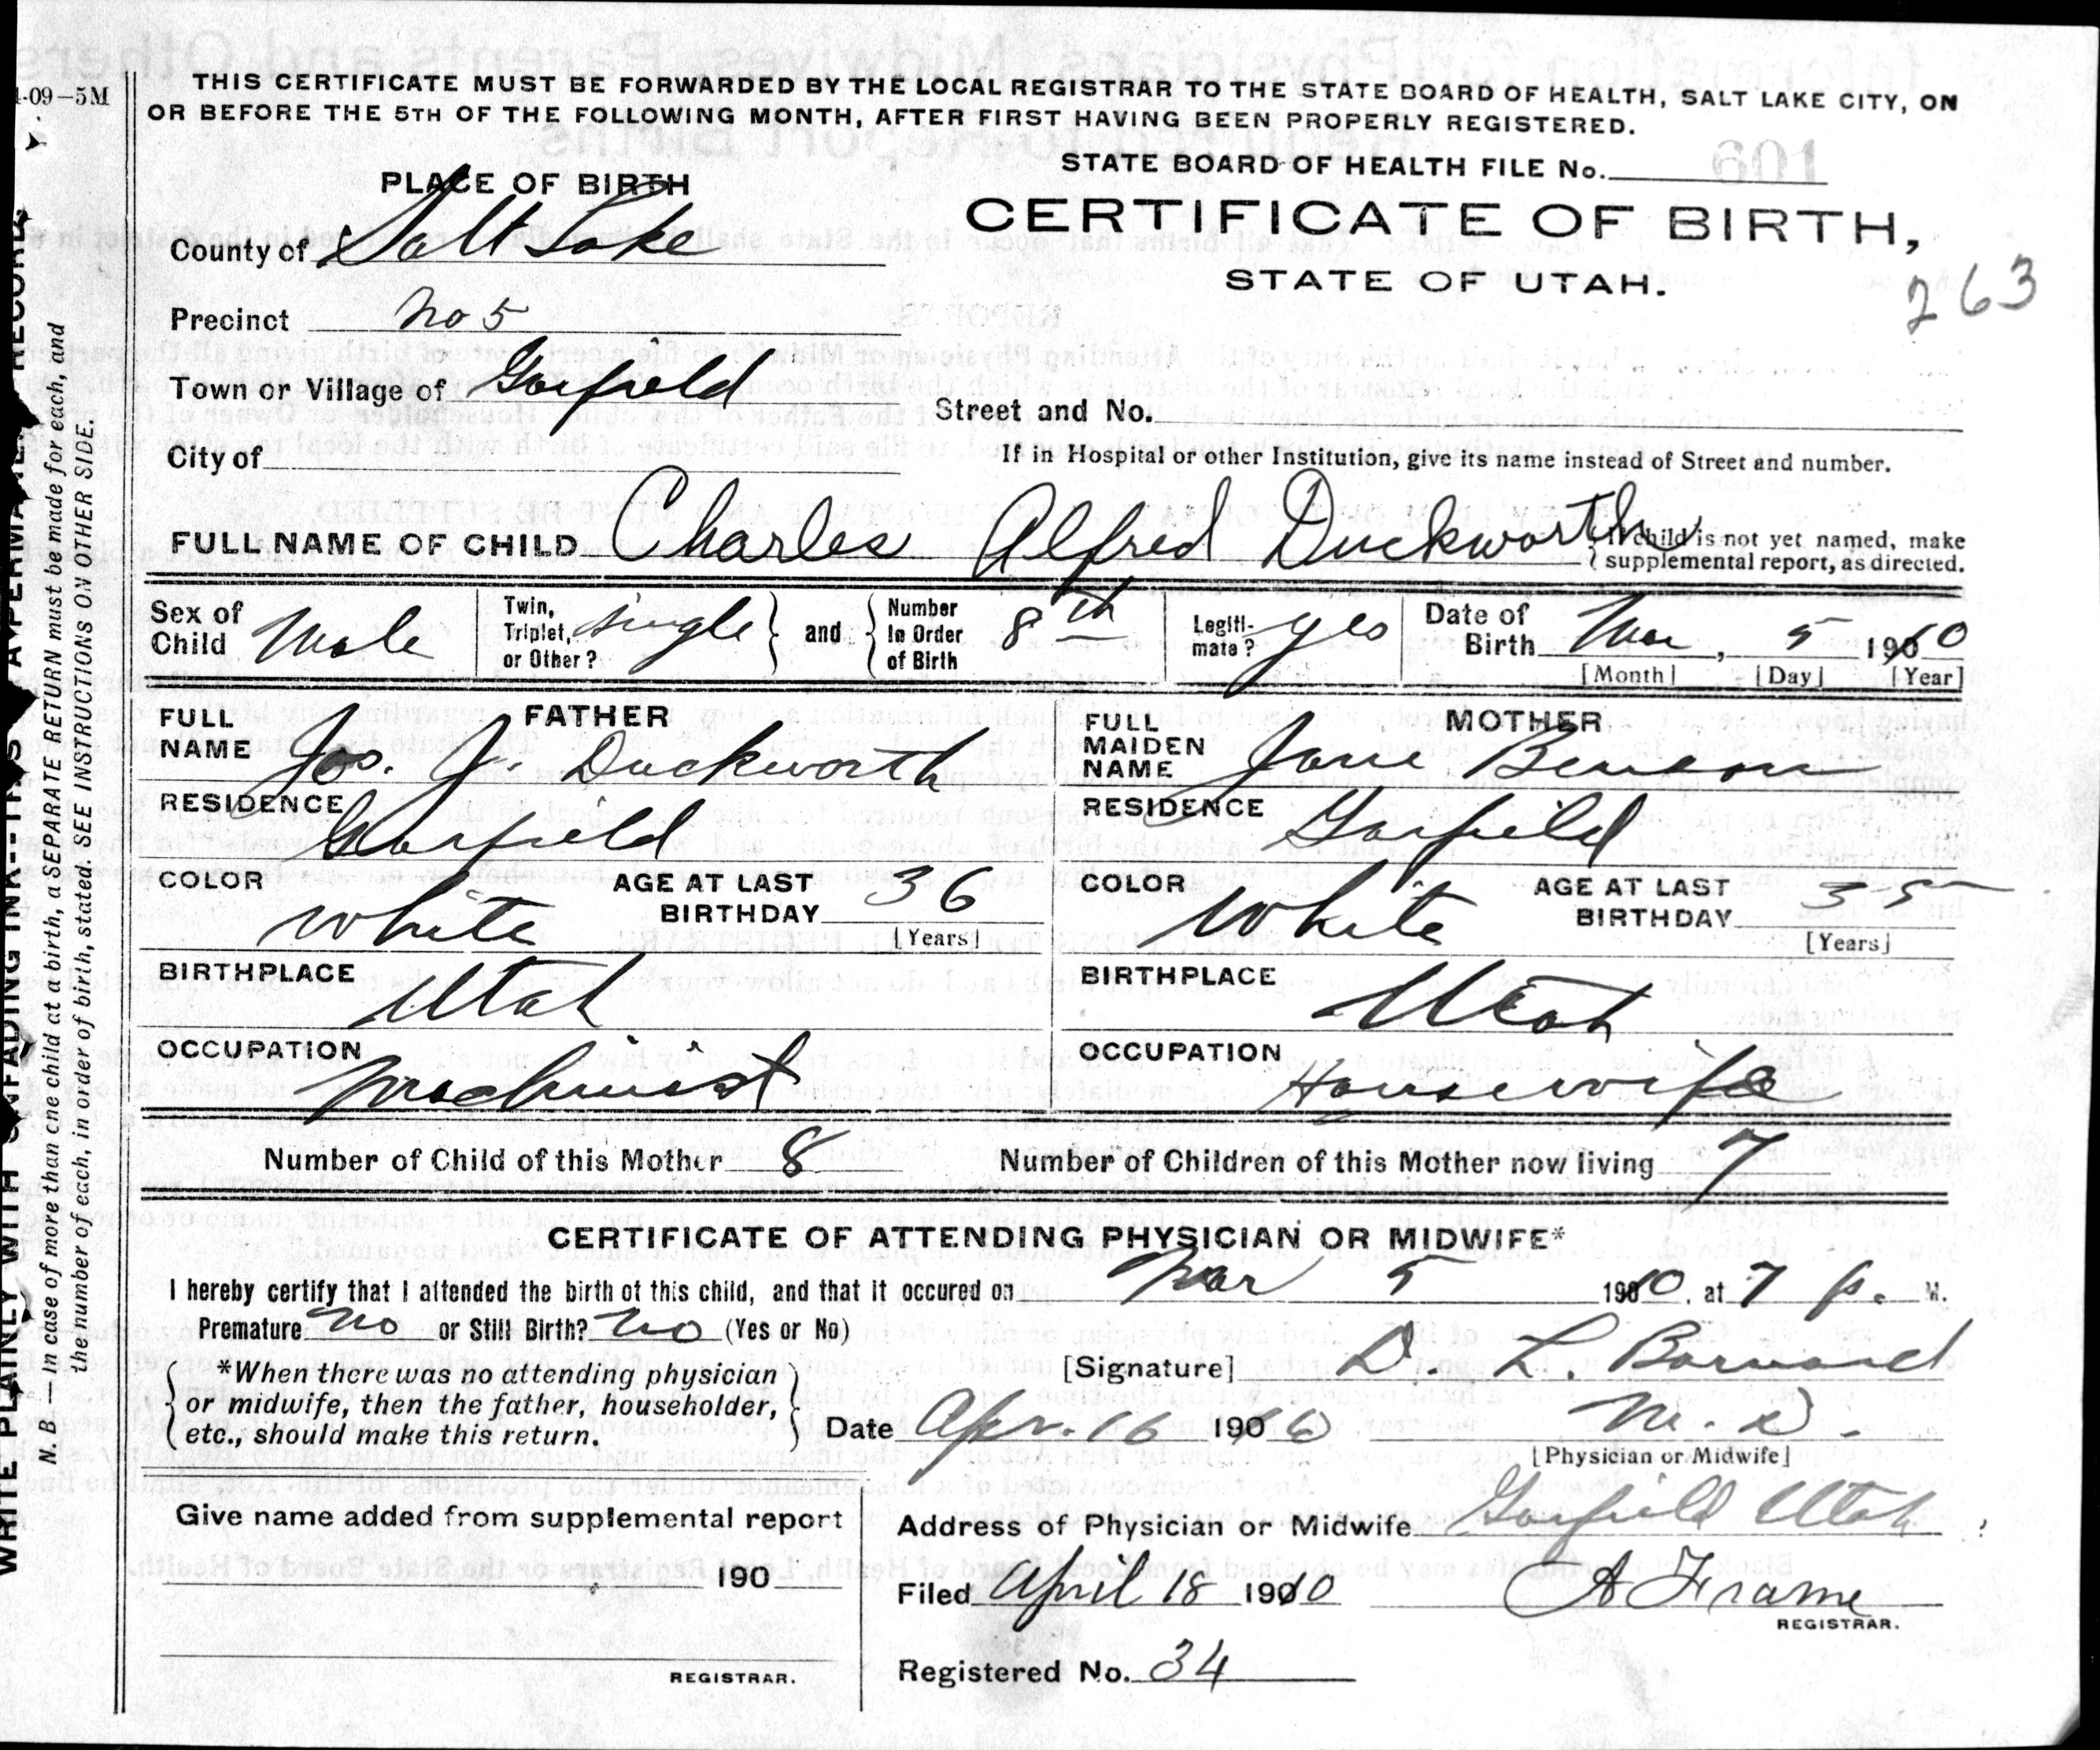 1-09-5M
THIS CERTIFICATE MUST BE FORWARDED BY THE LOCAL REGISTRAR TO THE STATE BOARD OF HEALTH, SALT LAKE CITY, ON
OR BEFORE THE 5TH OF THE FOLLOWING MONTH, AFTER FIRST HAVING BEEN PROPERLY REGISTERED.
STATE BOARD OF HEALTH FILE No.
PLACE OF BIRTH
CERTIFICATE OF BIRTH,
County of Salt Lake
STATE OF UTAH.
263
Precinct No 5
Town or Village of Garfield
Street and No.
City of
If in Hospital or other Institution, give its name instead of Street and number.
FULL NAME OF CHILD Charles Alfred Duckworth
If child is not yet named, make
supplemental report, as directed.
Sex of Child Male
Twin, Triplet, or Other? Single
and
Number In Order of Birth 8th
Legiti-mate? yes
Date of Birth Mar, 5 1910
[Month] [Day] [Year]
FATHER
FULL NAME Jos. J. Duckworth
RESIDENCE Garfield
COLOR White
AGE AT LAST BIRTHDAY 36
[Years]
BIRTHPLACE Utah
OCCUPATION Machinist
MOTHER
FULL MAIDEN NAME Jane Benson
RESIDENCE Garfield
COLOR White
AGE AT LAST BIRTHDAY 35
[Years]
BIRTHPLACE Utah
OCCUPATION Housewife
Number of Child of this Mother 8
Number of Children of this Mother now living 7
CERTIFICATE OF ATTENDING PHYSICIAN OR MIDWIFE*
I hereby certify that I attended the birth of this child, and that it occured on Mar 5 1910, at 7 p. M.
Premature No or Still Birth? No (Yes or No)
[Signature] D. L. Barnard
*When there was no attending physician
or midwife, then the father, householder,
etc., should make this return.
Date Apr. 16 1910 M. D.
[Physician or Midwife]
Give name added from supplemental report
190
REGISTRAR.
Address of Physician or Midwife Garfield Utah
Filed April 18 1910 A Frame
REGISTRAR.
Registered No. 34
N. B.—In case of more than one child at a birth, a SEPARATE RETURN must be made for each, and
the number of each, in order of birth, stated. SEE INSTRUCTIONS ON OTHER SIDE.
WRITE PLAINLY WITH UNFADING INK—THIS IS A PERMANENT RECORD